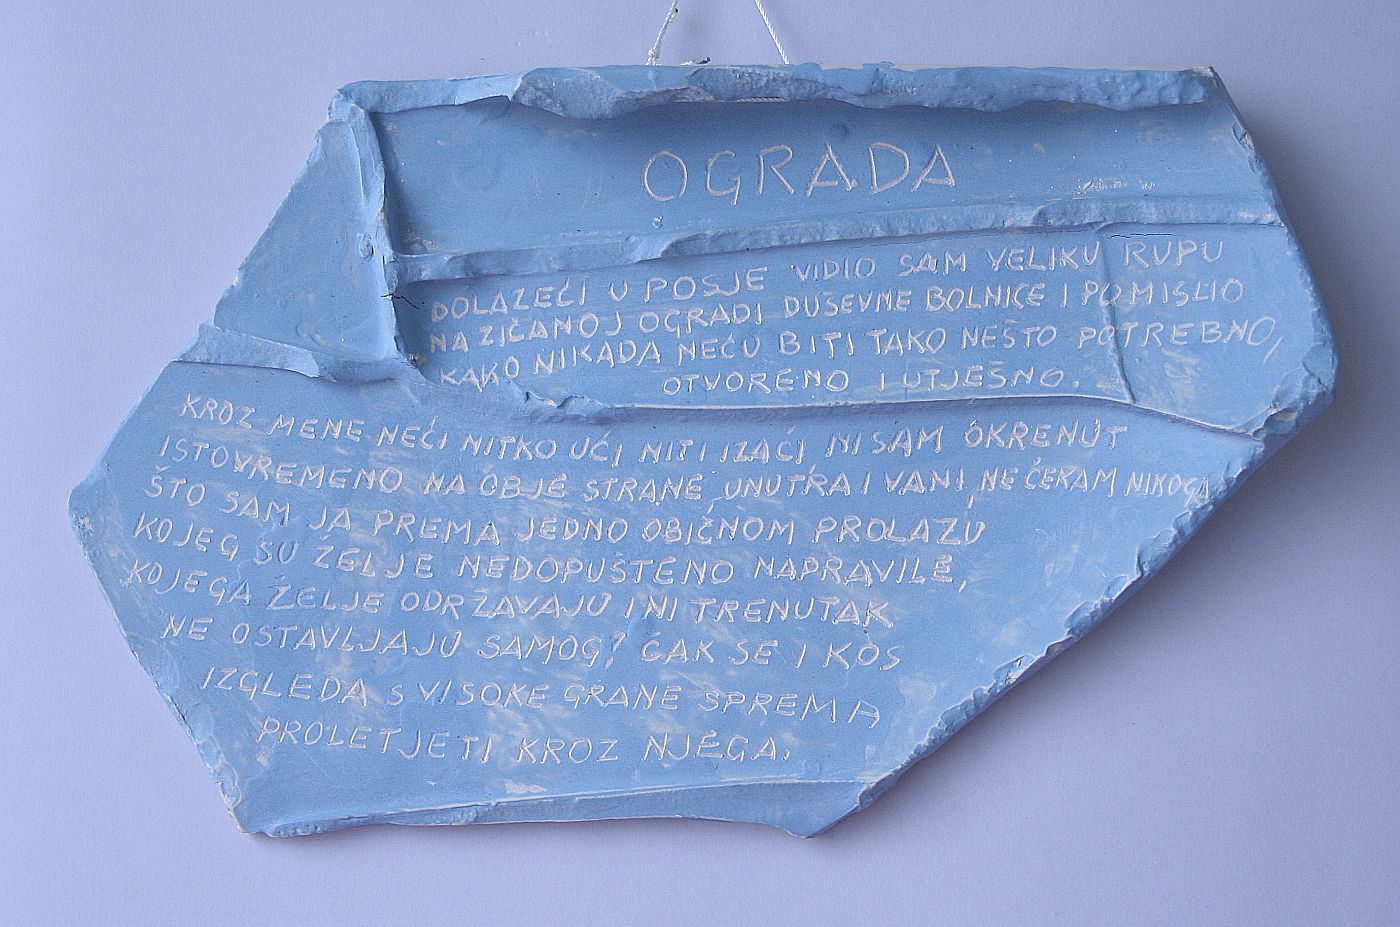 OGRADA
DOLAZEĆI U POSJE VIDIO SAM VELIKU RUPU
NA ZIČANOJ OGRADI DUŠEVNE BOLNICE I POMISLIO
KAKO NIKADA NEĆU BITI TAKO NEŠTO POTREBNO,
OTVORENO I UTJEŠNO.
KROZ MENE NEĆI NITKO UĆI NITI IZAĆI NISAM OKRENUT
ISTOVREMENO NA OBJE STRANE, UNUTRA I VANI, NE ČEKAM NIKOGA
ŠTO SAM JA PREMA JEDNO OBIČNOM PROLAZU
KOJEG SU ŽELJE NEDOPUŠTENO NAPRAVILE,
KOJEGA ŽELJE ODRŽAVAJU I NI TRENUTAK
NE OSTAVLJAJU SAMOG? ČAK SE I KOS
IZGLEDA S VISOKE GRANE SPREMA
PROLETJETI KROZ NJEGA.